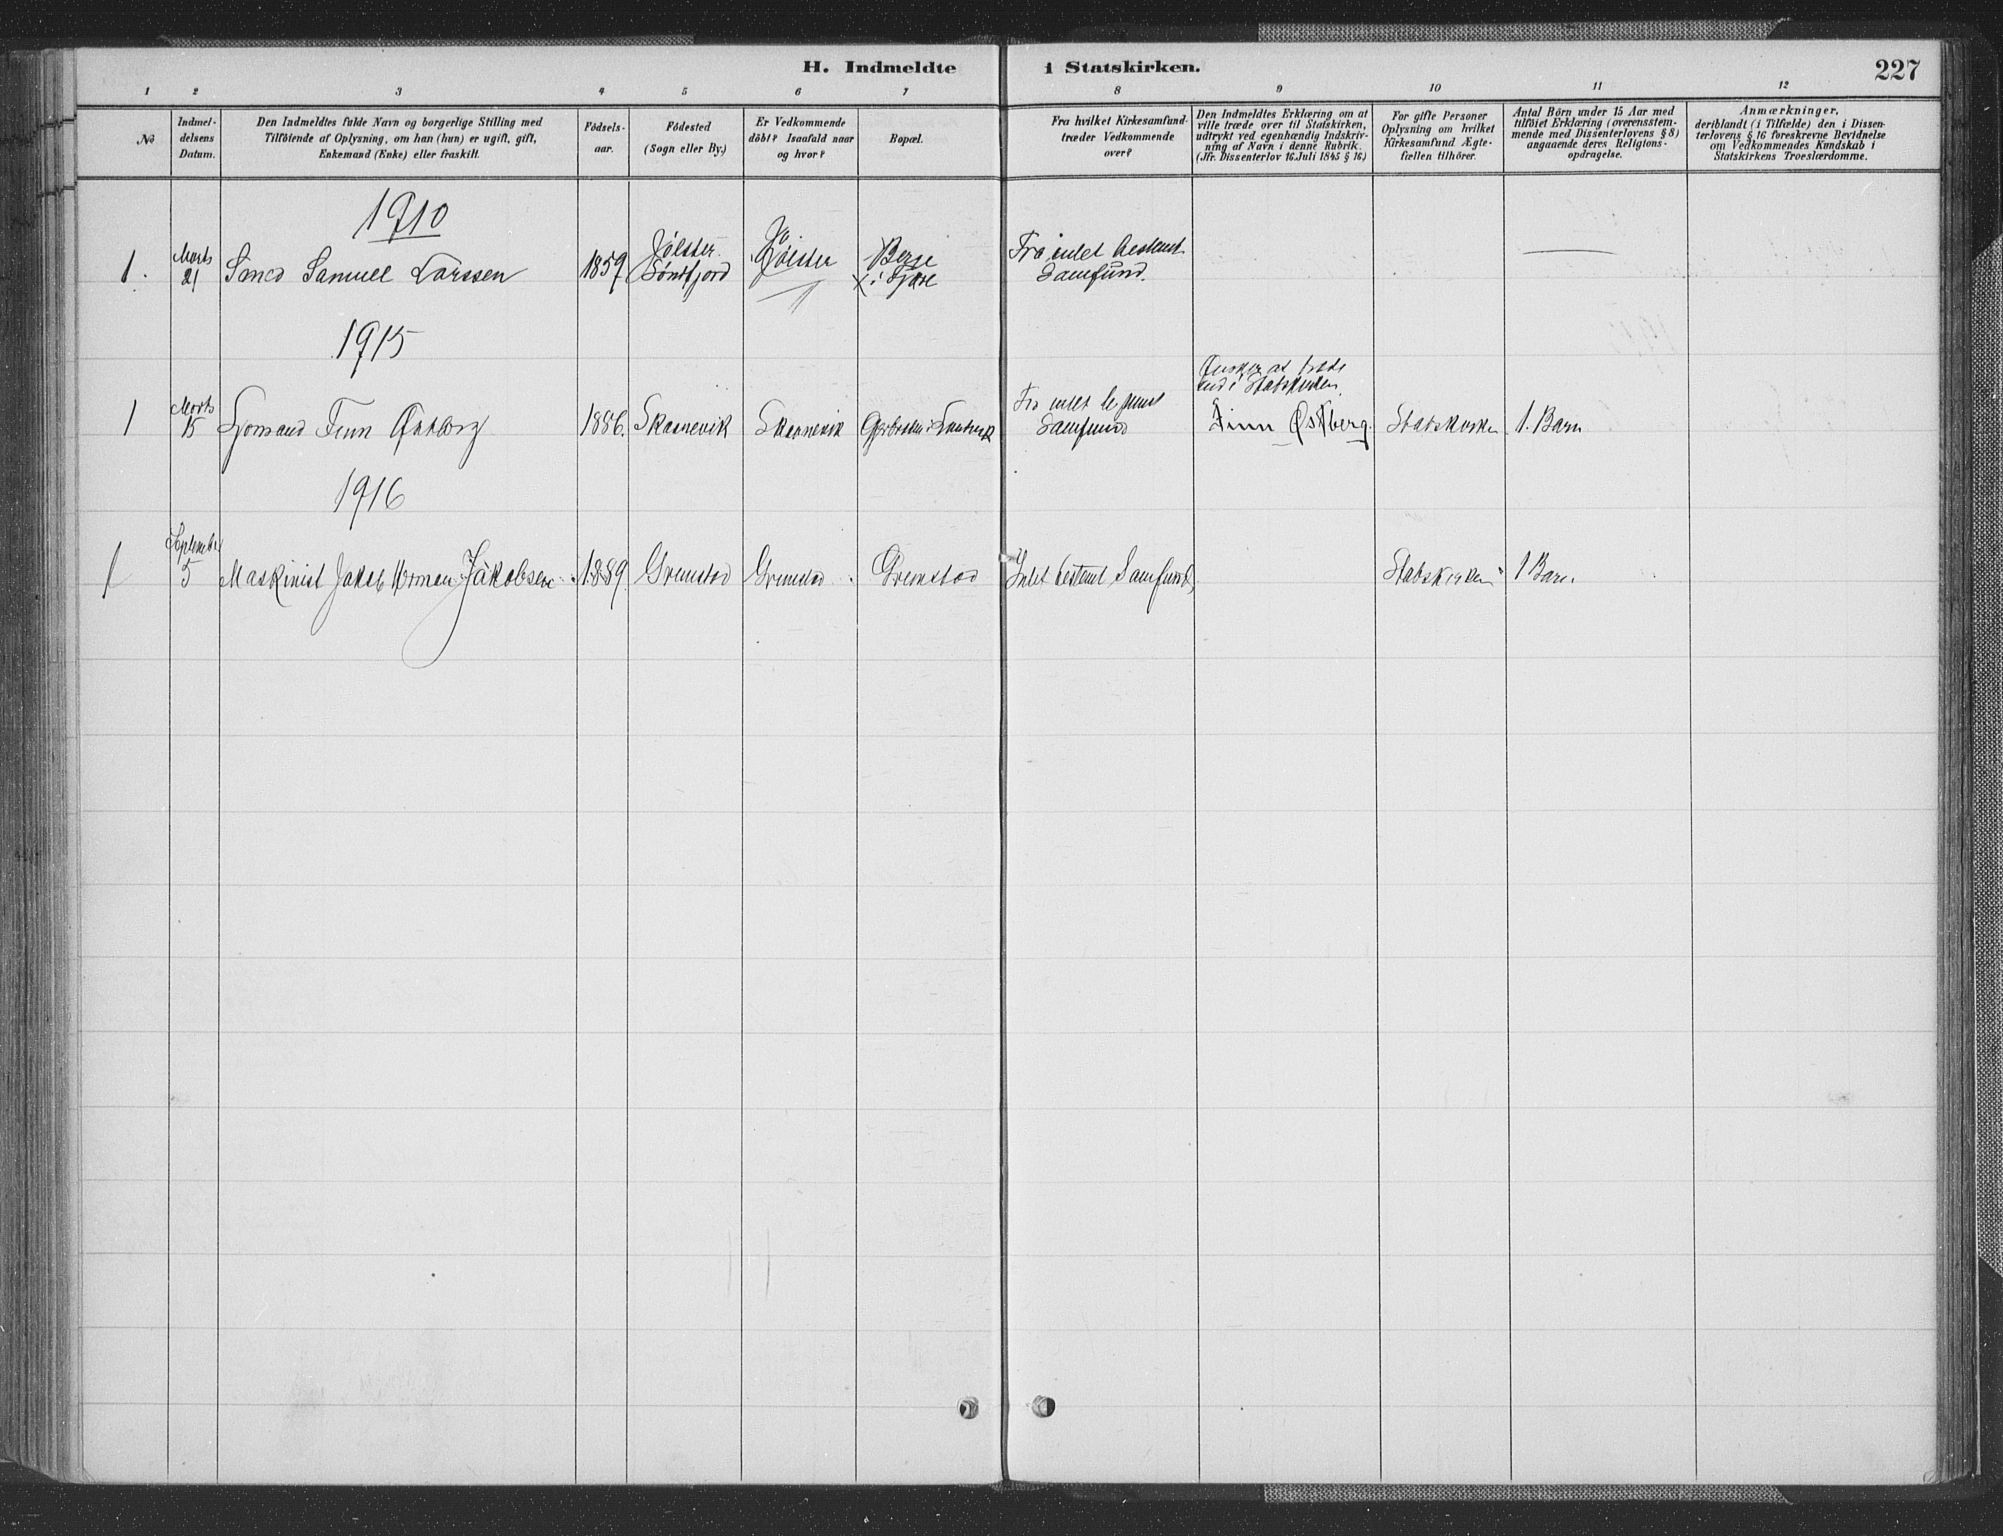 H. Indmeldte i Statskirken.
227
1 2 3 4 5 6 7 8 9 10 11 12
No
Indmeldelsens Datum.
Den Indmeldtes fulde Navn og borgerlige Stilling med
Tilföiende af Oplysning, om han (hun) er ugift, gift,
Enkemand (Enke) eller fraskilt.
Födselsaar.
Födested
(Sogn eller By.)
Er Vedkommende
döbt? Isaafald naar
og hvor?
Bopæl.
Fra hvilket Kirkesamfund
træder Vedkommende
over?
Den Indmeldtes Erklæring om at
ville træde over til Statskirken,
udtrykt ved egenhændig Indskrivning
af Navn i denne Rubrik.
(Jfr. Dissenterlov 16. Juli 1845 § 16)
For gifte Personer
Oplysning om hvilket
Kirkesamfund Ægtefællen
tilhörer.
Antal Börn under 15 Aar med
tilföiet Erklæring (overensstemmende
med Dissenterlovens § 8)
angaaende deres Religionsopdragelse.
Anmærkninger,
deriblandt (i Tilfælde) den i Dissenterlovens
§ 16 foreskrevne Bevidnelse
om Vedkommendes Kundskab i
Statskirkens Troeslærdomme.
1910
1. Marts 21 Smed Samuel Larssen 1859 Jølster Söndfjord Jølster Berge i Fjære Fra intet bestemt Samfund. —
1915
1 Marts 15 Sjømand Finn Østberg 1886. Skaanevik Skaanevik Fra intet bestemt Samfund
Ønsker at træde ind i Statskirken
Finn Østberg. Statskirken 1. Barn
1916
1 September 5 Maskinist Jakob Herman Jakobsen 1889. Grimstad Grimstad Grimstad Intet bestemt Samfund, Statskirken 1 Barn.